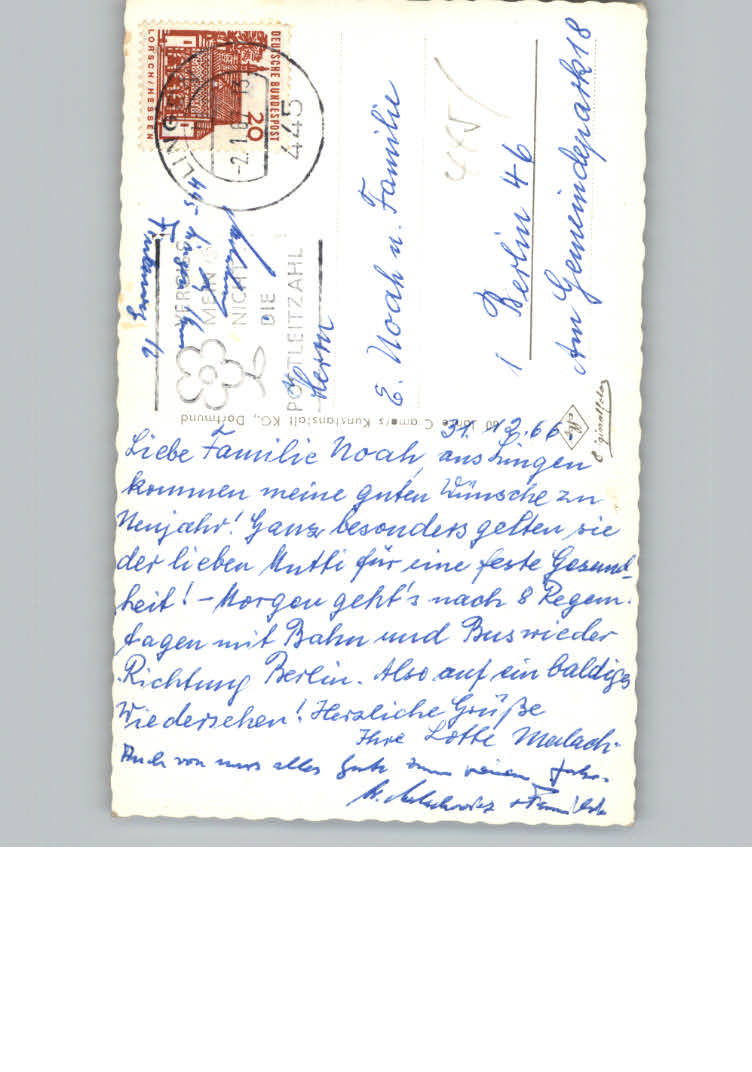 31.12.66
Liebe Familie Noah, aus Lingen
kommen meine guten Wünsche zu
Neujahr! Ganz besonders gelten sie
der lieben Mutti für eine feste Gesund-
heit! – Morgen geht's nach 8 Regen-
tagen mit Bahn und Bus wieder
Richtung Berlin. Also auf ein baldiges
Wiedersehen! Herzliche Grüße
Ihre Lotte Malach
Auch von uns alles Gute zum neuen Jahr.
Herrn
E. Noah u. Familie
1 Berlin 46
Am Gemeindepark 18
445
DEUTSCHE BUNDESPOST
20
LORSCH/HESSEN
LINGEN
445
-2.1.67
VERGISS
MEIN
NICHT
DIE
POSTLEITZAHL
445 Lingen
Cramers Kunstanstalt KG., Dortmund
Originalfoto